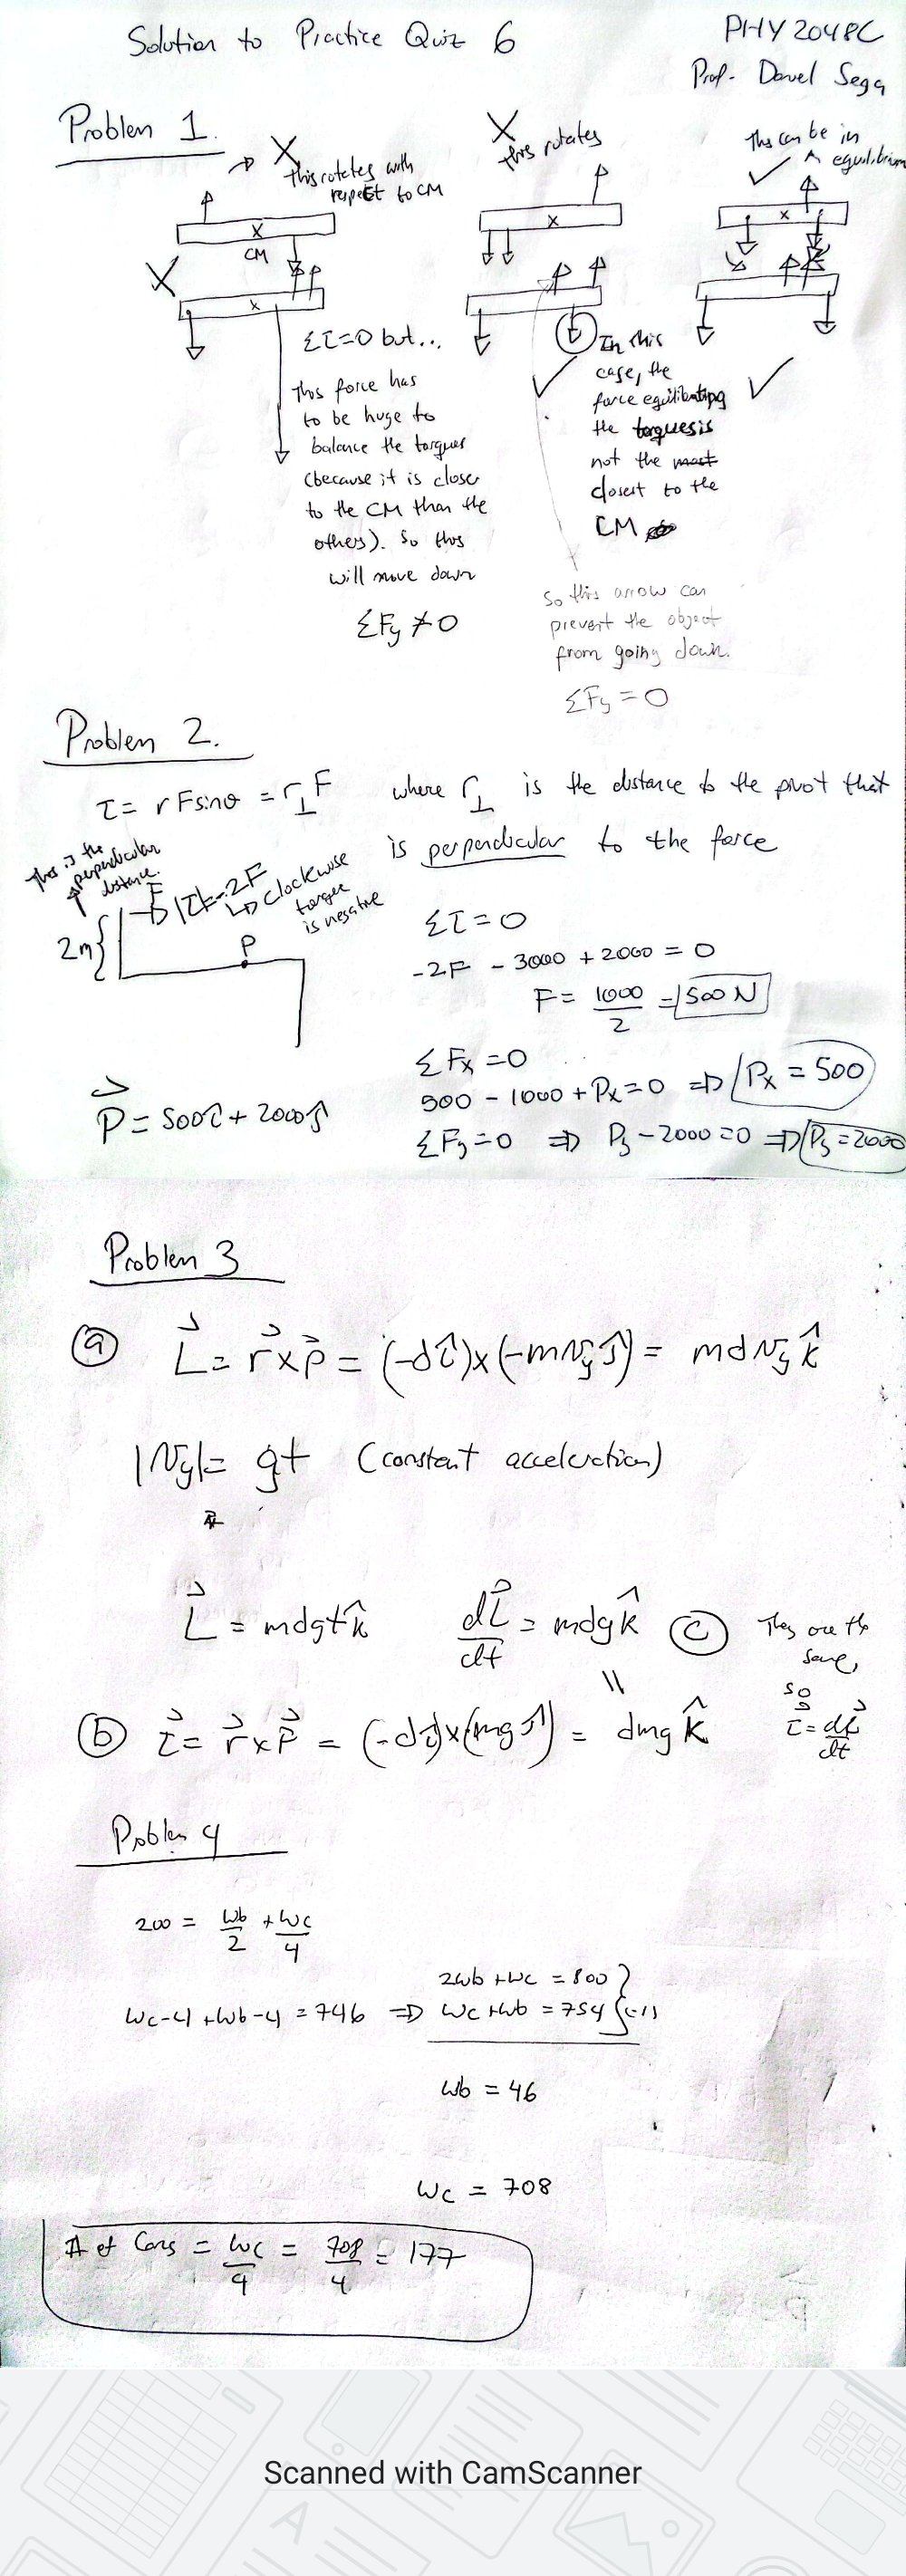 Solution to Practice Quiz 6
PHY2048C
Prof. Davel Sega
Problem 1.
X
this rotates with
respect to CM
X
this rotates
This can be in
equilibrium
X
CM
X
X
X
X
X
Στ=0 but...
This force has
to be huge to
balance the torques
(because it is closer
to the CM than the
others). So this
will move down
ΣFy ≠ 0
In this
case, the
force equilibrating
the torques is
not the most
closest to the
CM
So this arrow can
prevent the object
from going down.
ΣFy = 0
Problem 2.
τ = rFsinθ = r⊥F where r⊥ is the distance to the pivot that
is perpendicular to the force
This is the
perpendicular
distance.
F
|τ|=-2F
clockwise
torque
is negative
2m
P
Στ=0
-2F - 3000 + 2000 = 0
F = 1000/2 = 500 N
ΣFx = 0
500 - 1000 + Px = 0 ⇒ Px = 500
P⃗ = 500î + 2000ĵ
ΣFy=0 ⇒ Py - 2000 = 0 ⇒ Py = 2000
Problem 3
(a) L⃗ = r⃗ x p⃗ = (-dî)x(-mvyĵ) = mdvy k̂
|vy| = gt (constant acceleration)
L⃗ = mdgt k̂ dL⃗/dt = mdg k̂ (c) They are the
same,
so
τ⃗ = dL⃗/dt
(b) τ⃗ = r⃗ x F⃗ = (-dî)x(mgĵ) = dmg k̂
Problem 4
200 = wb/2 + wc/4
2wb + wc = 800
wc-4 + wb-4 = 746 ⇒ wc + wb = 754 (-1)
wb = 46
wc = 708
# of Cons = wc/4 = 708/4 = 177
Scanned with CamScanner